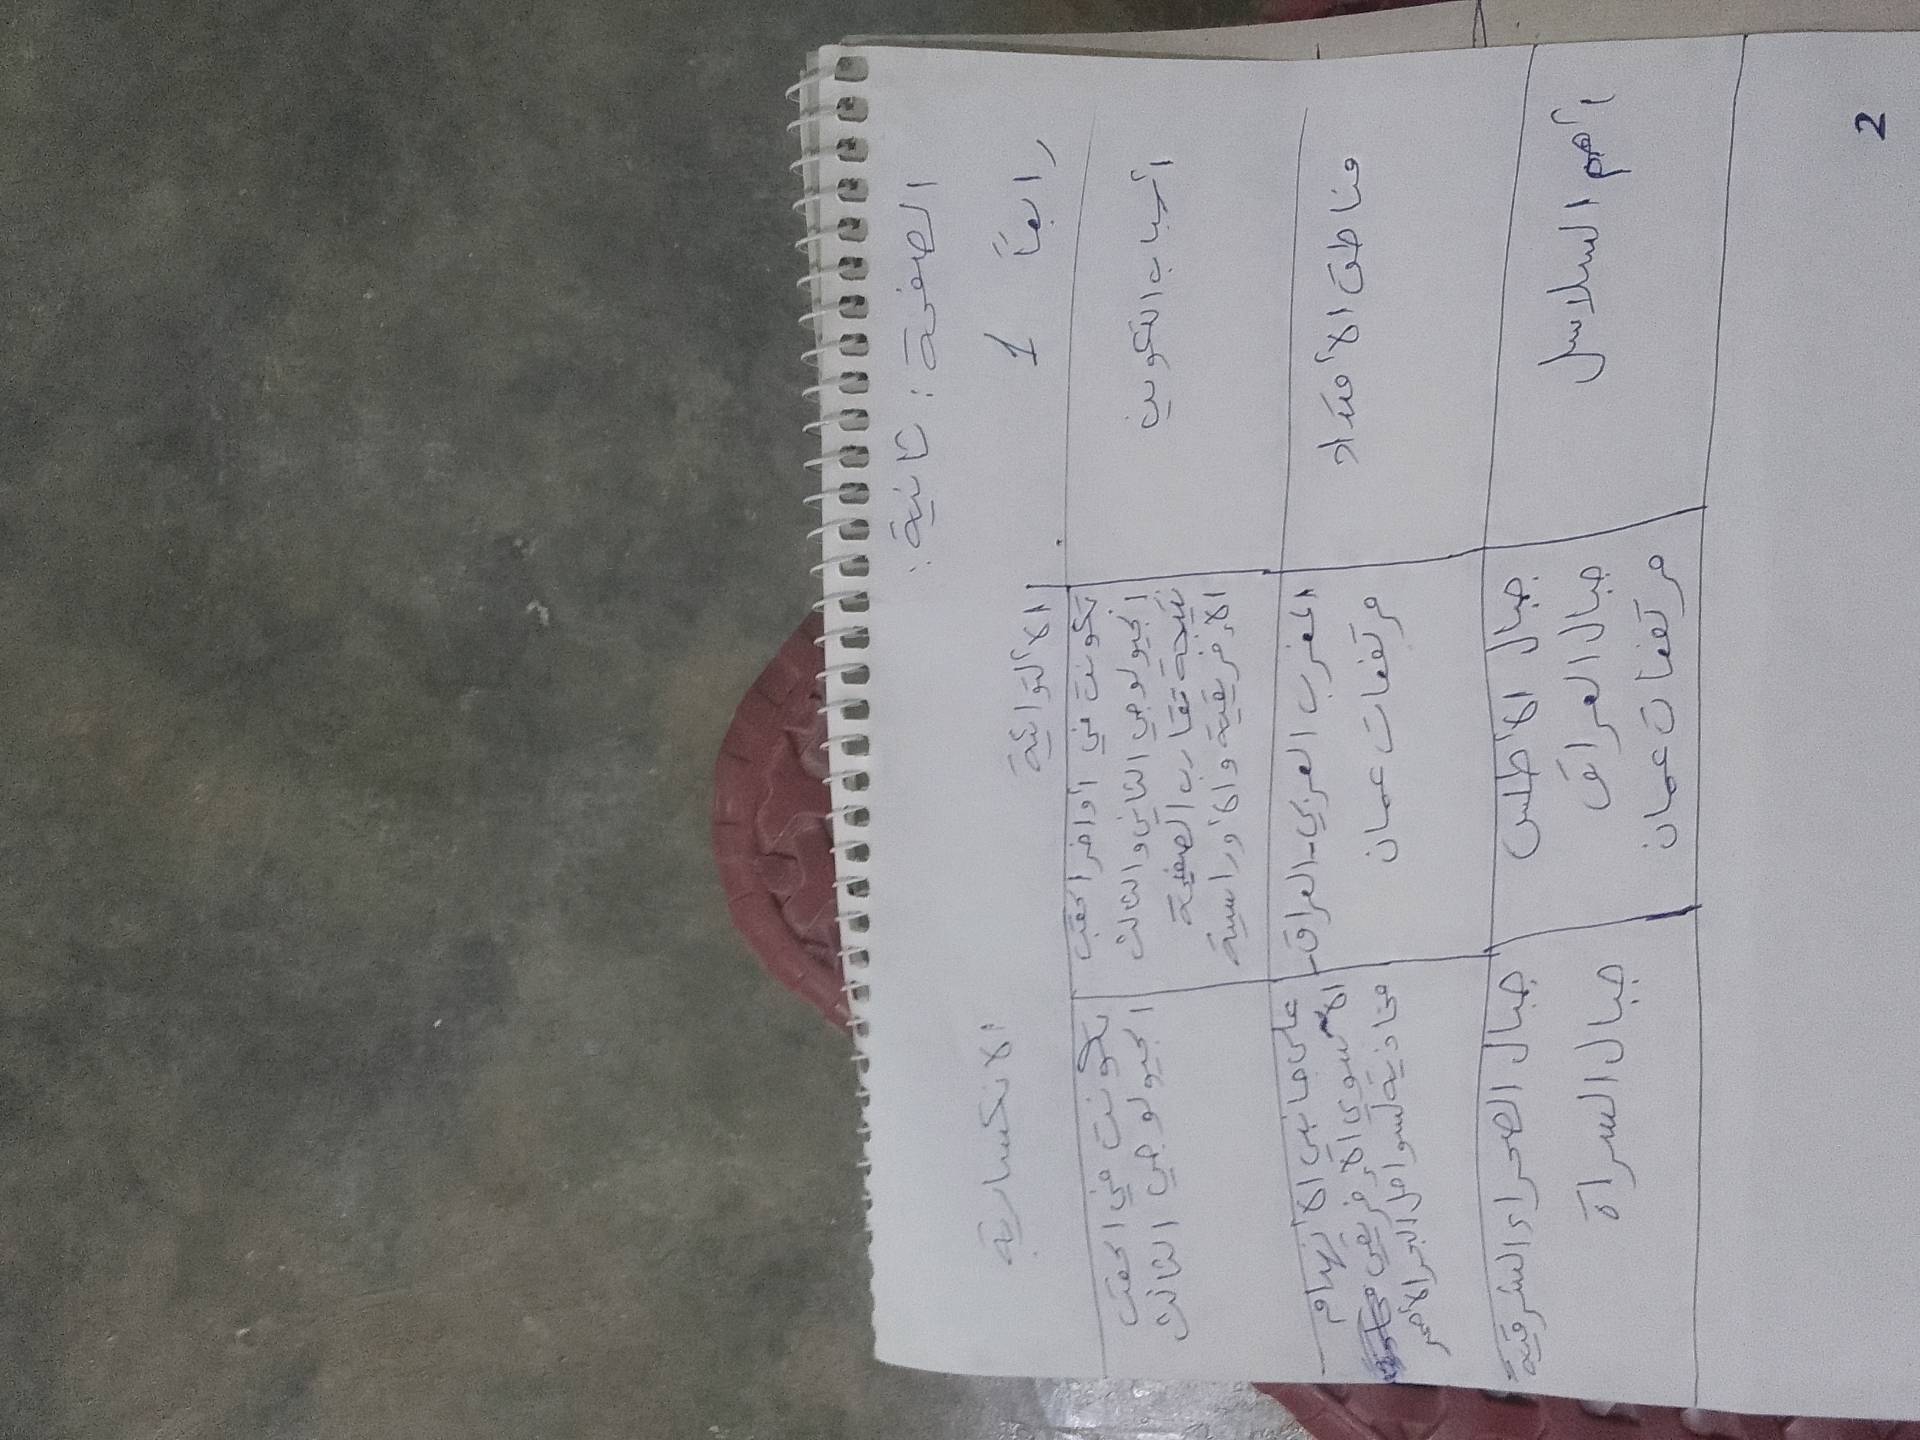 الصفحة: ثانية:
رابعاً 1
الألتوائية
الانكسارية
أسباب التكوين
تكونت في أواخر الحقب
الجيولوجي الثاني والثالث
نتيجة تقارب الصفيحة
الإفريقية والأوراسية
تكونت في الحقب
الجيولوجي الثالث
مناطق الأمتداد
المغرب العربي - العراق -
مرتفعات عمان
على جانبي الأنهدام
الآسوي الإفريقي
محاذية لسواحل البحر الأحمر
أهم السلاسل
جبال الأطلس
جبال العراق
مرتفعات عمان
جبال الصحراء الشرقية
جبال السراة
2